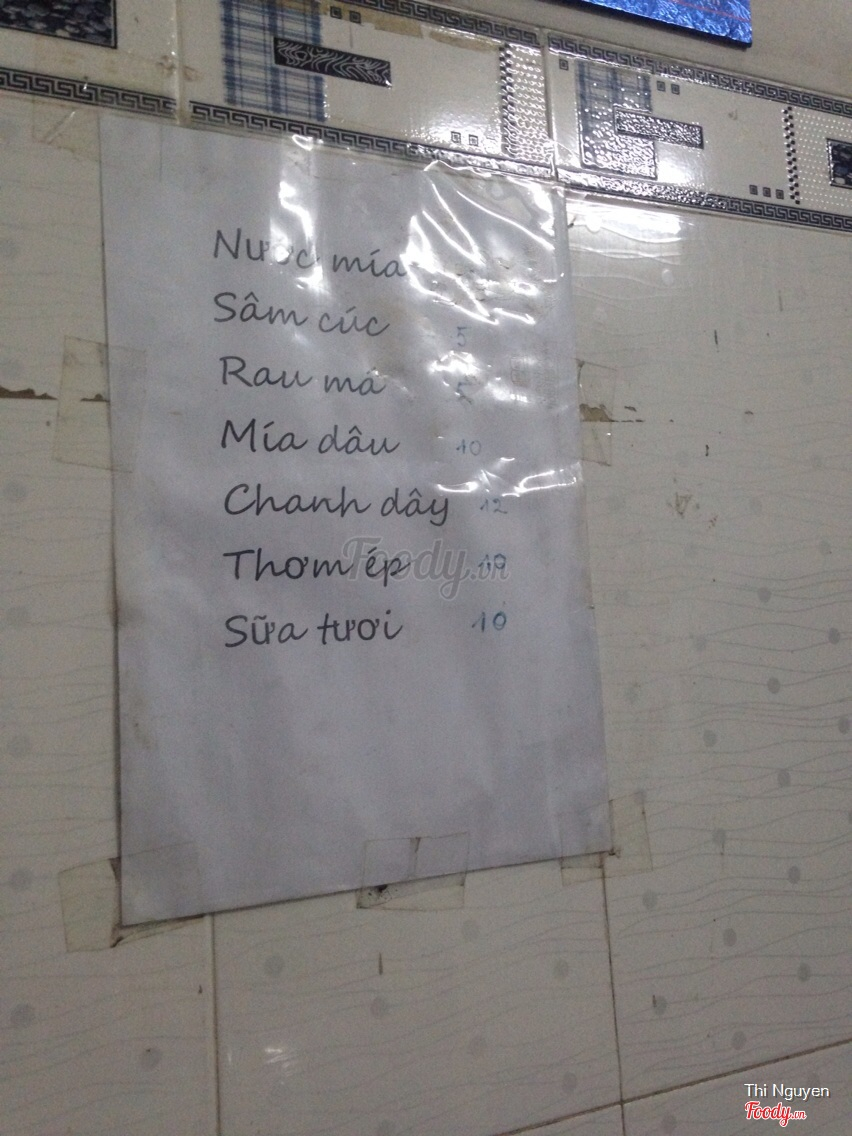 Nước mía
Sâm cúc 5
Rau má 5
Mía dâu 10
Chanh dây 12
Thơm ép 10
Sữa tươi 10
Foody.vn
Thi Nguyen
Foody.vn